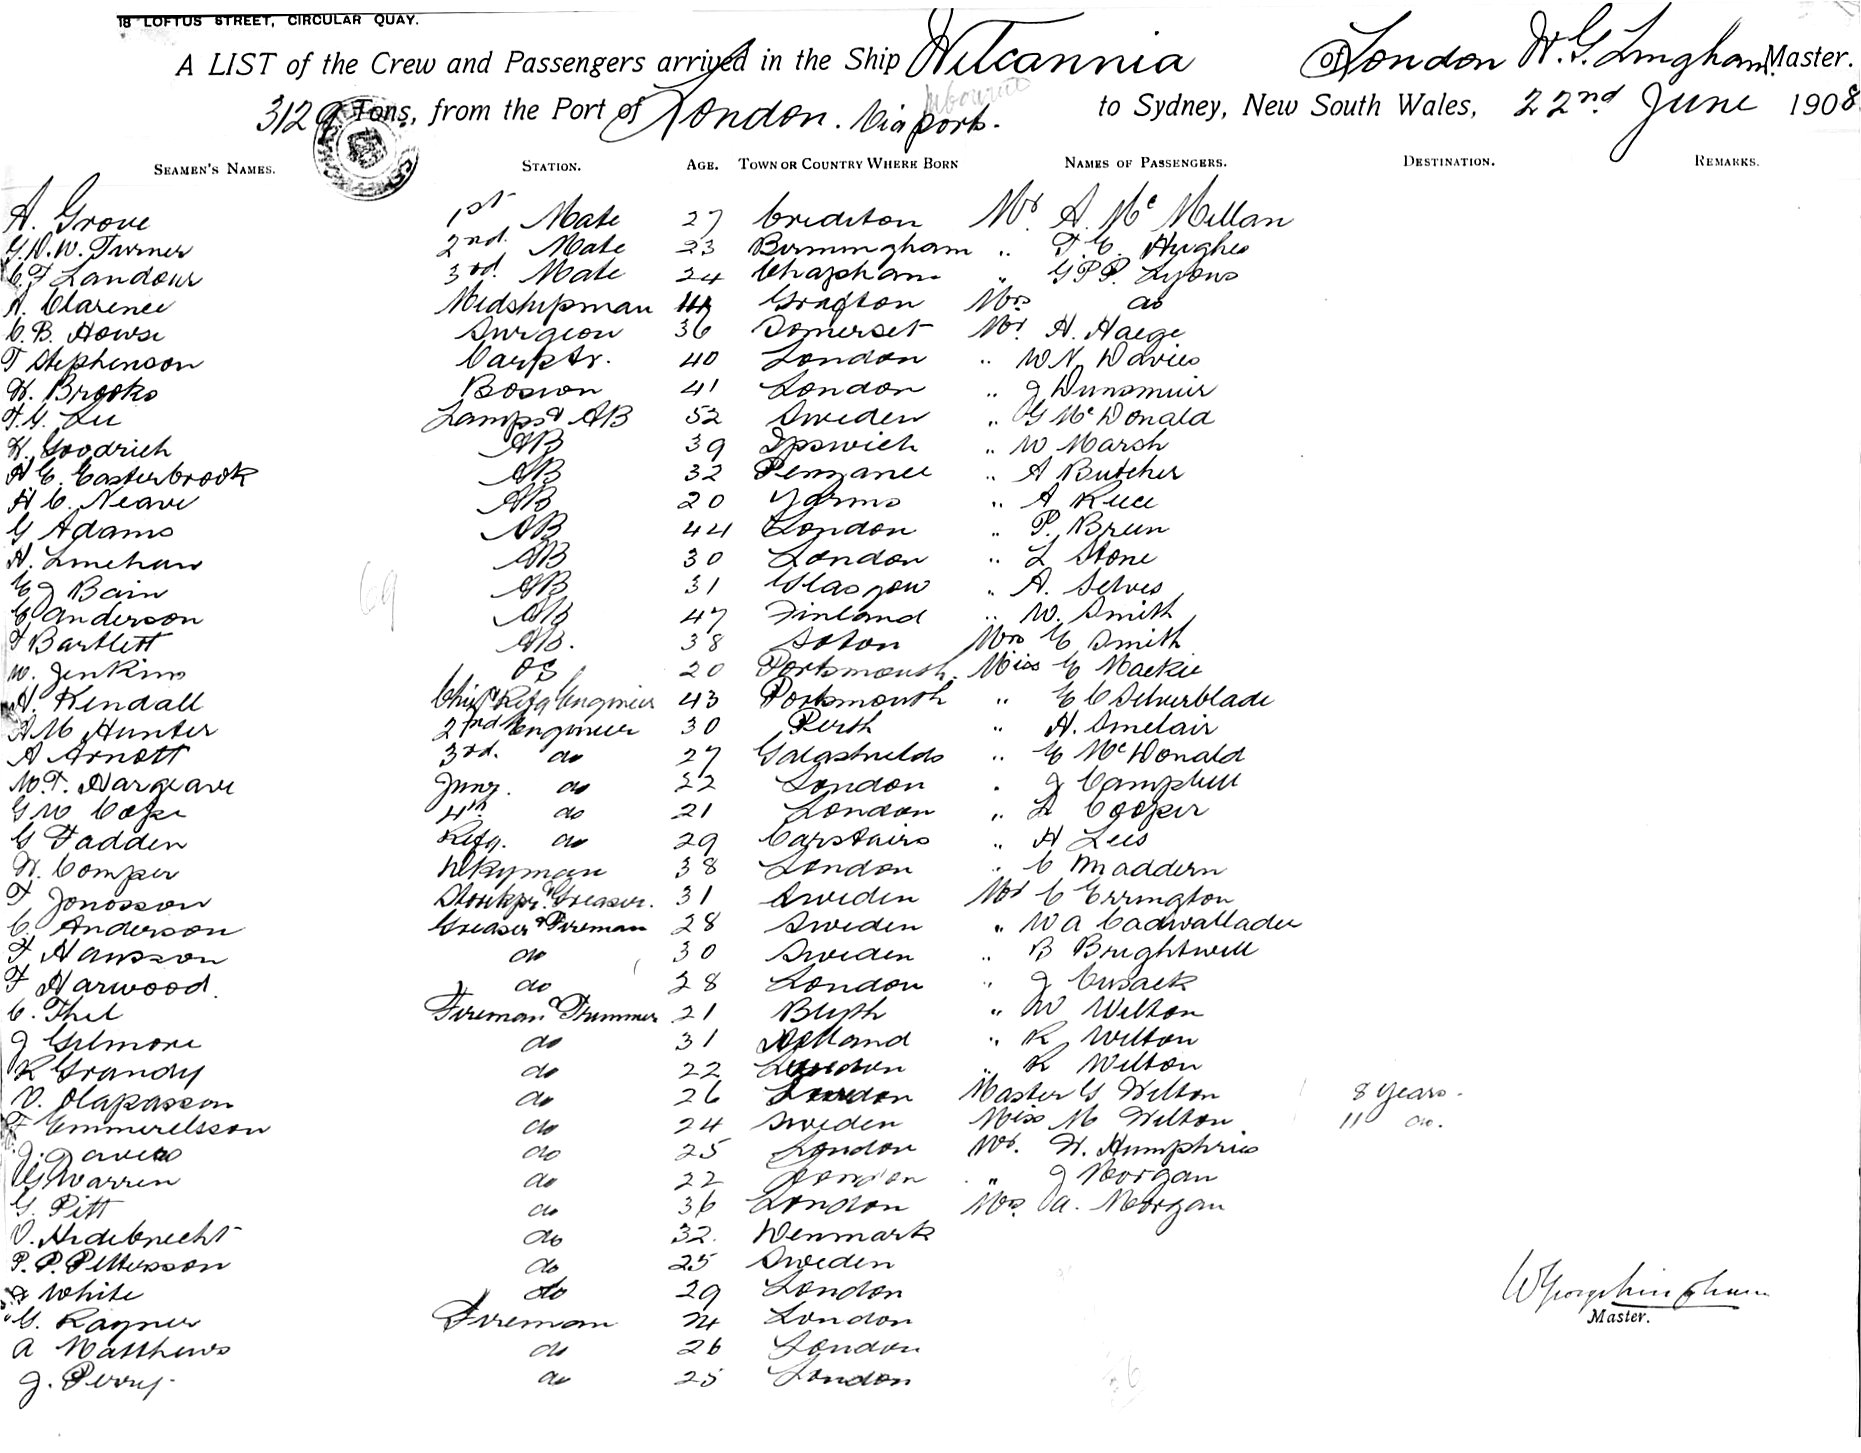 18 LOFTUS STREET, CIRCULAR QUAY.
A LIST of the Crew and Passengers arrived in the Ship Wilcannia of London W. G. Lingham Master.
3129 Tons, from the Port of London. Via ports. to Sydney, New South Wales, 22nd June 1908
SEAMEN'S NAMES. STATION. AGE. TOWN OR COUNTRY WHERE BORN NAMES OF PASSENGERS. DESTINATION. REMARKS.
A. Grove 1st Mate 27 Crediton Mr A. Mc Millan
G.D.W. Turner 2nd. Mate 23 Birmingham " F. C. Hughes
C F Landour 3rd. Mate 24 Clapham " G P P. Lyons
A. Clarence Midshipman Grafton Mrs do
C. B. Howse Surgeon 36 Somerset Mr H. Haege
T Stephenson Carptr. 40 London " W N. Davies
H. Brooks Boswn 41 London " J Dunsmuir
F. G. Lee Lamps & AB 52 Sweden " G McDonald
H. Goodrich AB 39 Ipswich " W Marsh
H C. Easterbrook AB 32 Penzance " A Butcher
H C. Neave AB 20 Yarms " A Rice
G Adams AB 44 London " P. Breen
A. Linehan AB 30 London " L Stone
E J Bain AB 31 Glasgow " A. Selves
C Anderson AB 47 Finland " W. Smith
F Bartlett AB. 38 Soton Mrs E Smith
W. Jenkins OS 20 Portsmouth. Miss E Mackie
H. Kendall Chief & Refg Engineer 43 Portsmouth " E C Silverblade
A M Hunter 2nd Engineer 30 Perth " H. Sinclair
A Arnott 3rd. do 27 Galashields " E McDonald
W. T. Hargeave Junr. do 22 London " J Campbell
G W Cope 4th do 21 London " L Cooper
G Fadden Refg. do 29 Carstairs " H Lees
H. Comper Dkyman 38 London " C Maddern
F Jonosson Storkpr. & Greaser. 31 Sweden Mr C Errington
C. Anderson Greaser & Fireman 28 Sweden " W A Cadwallader
F Hansson do 30 Sweden " B Brightwell
F Harwood. do 28 London " J Cusack
C. Thel Fireman & Trimmer 21 Blyth " W Wilton
J Gilmore do 31 Holland " R Wilton
R Grandy do 22 London " R Wilton
V. Olapasson do 26 Master G Wilton 8 Years.
F Emmerelsson do 24 Sweden Miss M Wilton 11 do.
J. Davies do 25 London Mr. H. Humphries
G Warren do 22 London " J Morgan
G. Pitt do 36 London Mrs. A. Morgan
V. Hidebnecht do 32. Denmark
P. P. Pettersson do 25 Sweden
J White do 29 London
G. Rayner Fireman 24 London
A Matthews do 26 London
J. Perry. do 25 London
69
W George Lingham
Master.